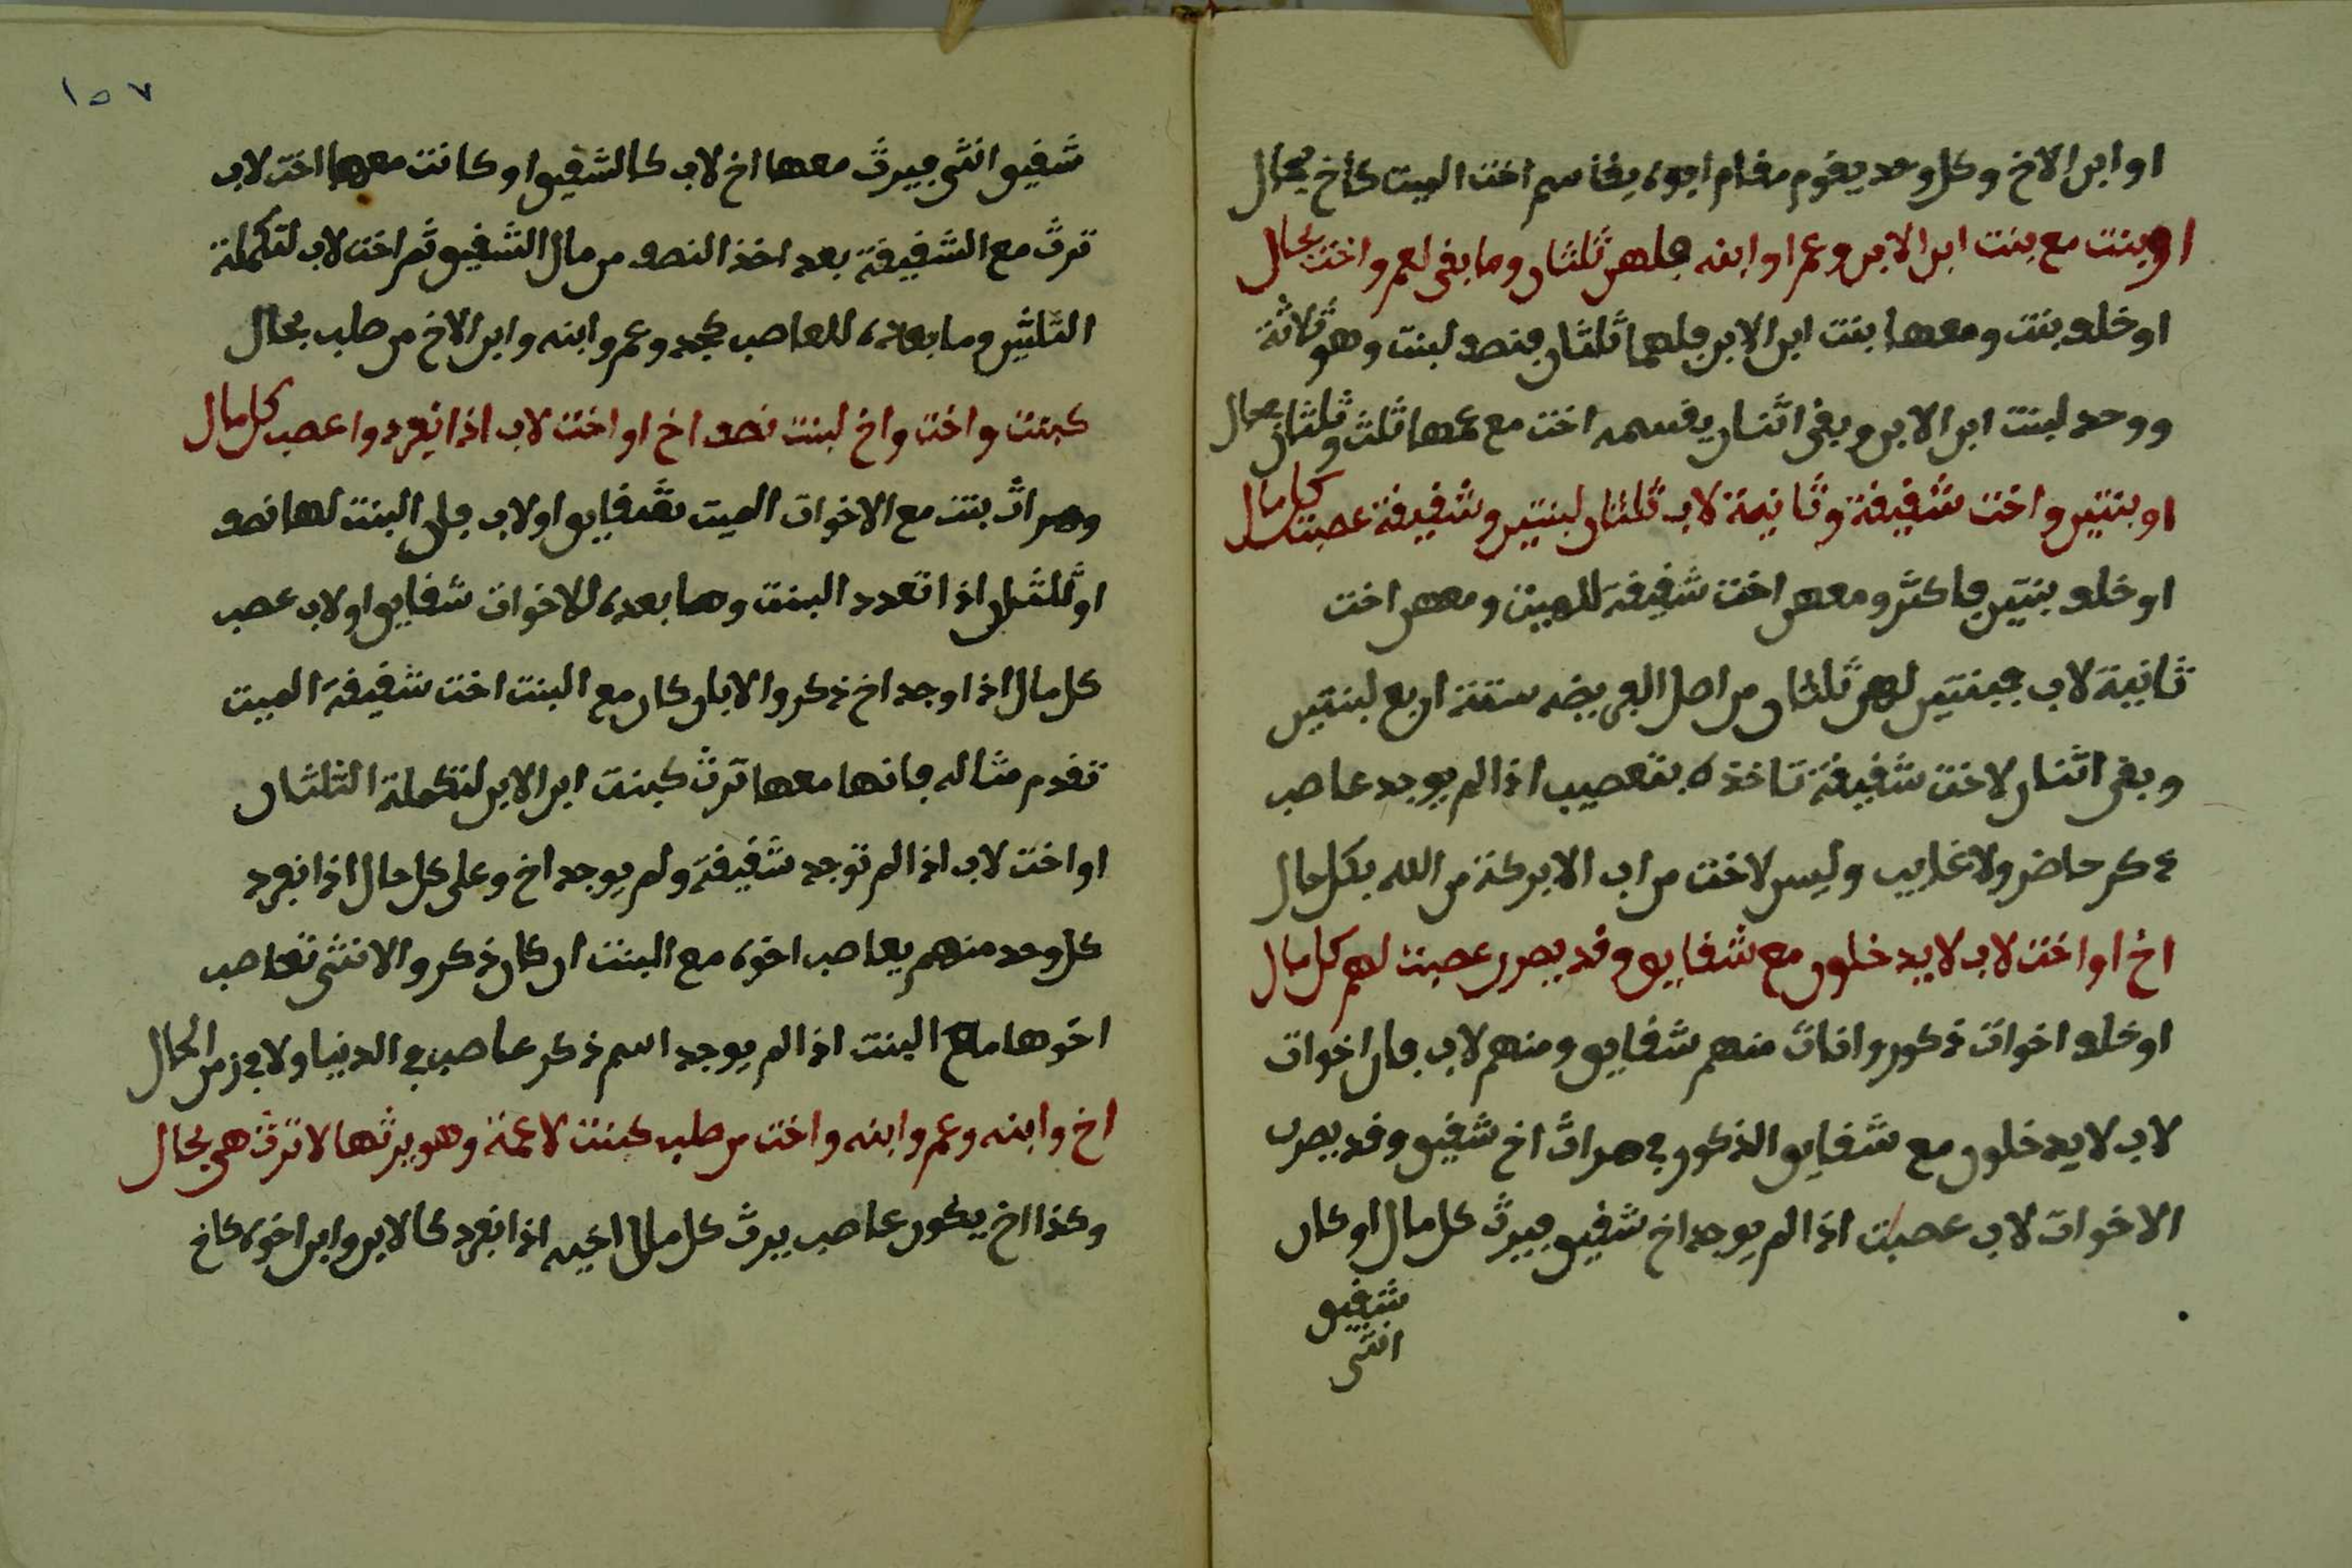 او ابن الاخ وكل وحد يقوم مقام ابوه يقاسم اخت الميت كاخ بحال
او بنت مع بنت ابن الابن وعم او ابنه فلهن ثلثان وما بقى لعم واخت بحال
او خلف بنت ومعها بنت ابن الابن فلهما ثلثان فنصف لبنت وهو ثلاثة
ووحد لبنت ابن الابن وبقى اثنان يقسمه اخت مع عمها ثلث وثلثان بحال
او بنتين واخت شقيقة وثانية لاب ثلثان لبنتين وشقيقة عصبت كل مال
او خلف بنتين فاكثر ومعهن اخت شقيقة للميت ومعهن اخت
ثانية لاب فبنتين لهن ثلثان من اصل الفريضه ستة اربع لبنتين
وبقى اثنان لاخت شقيقة تاخذه بتعصيب اذا لم يوجد عاصب
ذكر حاضر ولا غايب وليس لاخت من اب الا بركة من الله بكل حال
اخ او اخت لاب لا يدخلون مع شقايق وقد يصرن عصبت لهم كل مال
او خلف اخوات ذكور واناث منهم شقايق ومنهم لاب فان اخوات
لاب لا يدخلون مع شقايق الذكور في مراث اخ شقيق وقد يصرن
الاخوات لاب عصبت اذا لم يوجد اخ شقيق فيرث كل مال او كان
شقيق
انثى
١٥٧
شقيق انثى فيرث معها اخ لاب كالشقيق او كانت معها اخت لاب
ترث مع الشقيقة بعد اخذ النصف من مال الشقيق ثم اخت لاب لتكملة
الثلثين وما بعده للعاصب كجد وعم وابنه وابن الاخ من صلب بحال
كبنت واخت واخ لبنت نصف اخ او اخت لاب اذا انفرد واعصب كل مال
ومراث بنت مع الاخوات الميت شقايق او لاب فلل البنت لها نصف
او للثلثان اذا تعدد البنت وما بعده للاخوات شقايق او لاب عصب
كل مال اذا وجد اخ ذكر والا بان كان مع البنت اخت شقيقة الميت
تقدم مثاله فانها معها ترث كبنت ابن الابن لتكملة الثلثان
او اخت لاب اذا لم توجد شقيقة ولم يوجد اخ وعلى كل حال اذا انفرد
كل وحد منهم يعاصب اخوه مع البنت ان كان ذكر والانثى تعاصب
اخوها مع البنت اذا لم يوجد اسم ذكر عاصب في الدنيا ولا في زمن الحال
اخ وابنه وعم وابنه واخت من صلب كبنت لا عمة وهو يرثها لا ترث هي بحال
وكذا اخ يكون عاصب يرث كل مال اخيه اذا انفرد كالابن وابن اخوه كاخ